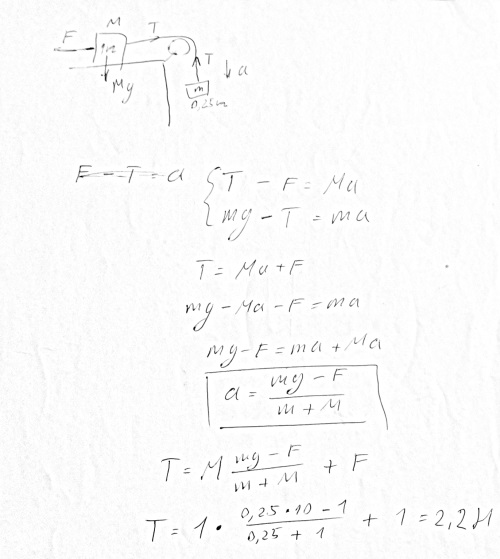 M
F T
m T a
Mg m
0,25м
F - T = a { T - F = Ma
mg - T = ma
T = Ma + F
mg - Ma - F = ma
mg - F = ma + Ma
a = \frac{mg - F}{m + M}
T = M \frac{mg - F}{m + M} + F
T = 1 · \frac{0,25 · 10 - 1}{0,25 + 1} + 1 = 2,2 Н